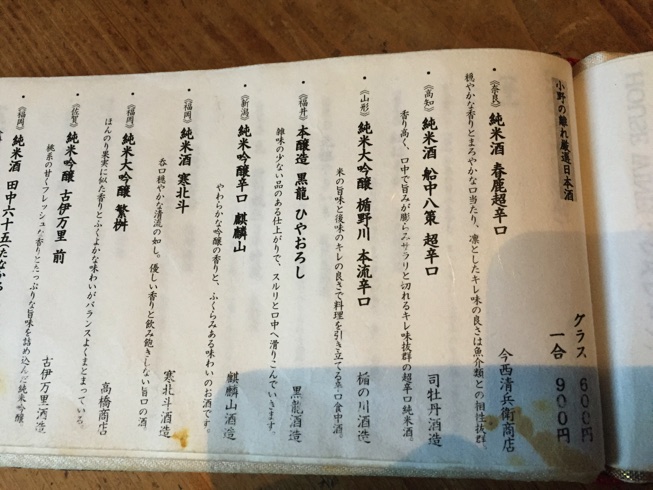 小野の離れ厳選日本酒
グラス 600円
一合 900円
・《奈良》 純米酒 春鹿超辛口
今西清兵衛商店
穏やかな香りとまろやかな口当たり、凛としたキレ味の良さは魚介類との相性抜群
・《高知》 純米酒 船中八策 超辛口
司牡丹酒造
香り高く、口中で旨みが膨らみサラリと切れるキレ味抜群の超辛口純米酒。
・《山形》 純米大吟醸 楯野川 本流辛口
楯の川酒造
米の旨味と後味のキレの良さで料理を引き立てる辛口食中酒。
・《福井》 本醸造 黒龍 ひやおろし
黒龍酒造
雑味の少ない品のある仕上がりで、スルリと口中へ滑りこんでいきます。
・《新潟》 純米吟醸辛口 麒麟山
麒麟山酒造
やわらかな吟醸の香りと、ふくらみある味わいのお酒です。
・《福岡》 純米酒 寒北斗
寒北斗酒造
呑口穏やかな清流の如し。優しい香りと飲み飽きしない旨口の酒
・《福岡》 純米大吟醸 繁桝
高橋商店
ほんのり果実に似た香りとふくよかな味わいがバランスよくまとまっている。
・《佐賀》 純米吟醸 古伊万里 前
古伊万里酒造
桃系の甘くフレッシュな香りとたっぷりな旨味を詰め込んだ純米吟醸
・《福岡》 純米酒 田中六十五(たなか
HOUSE WINE